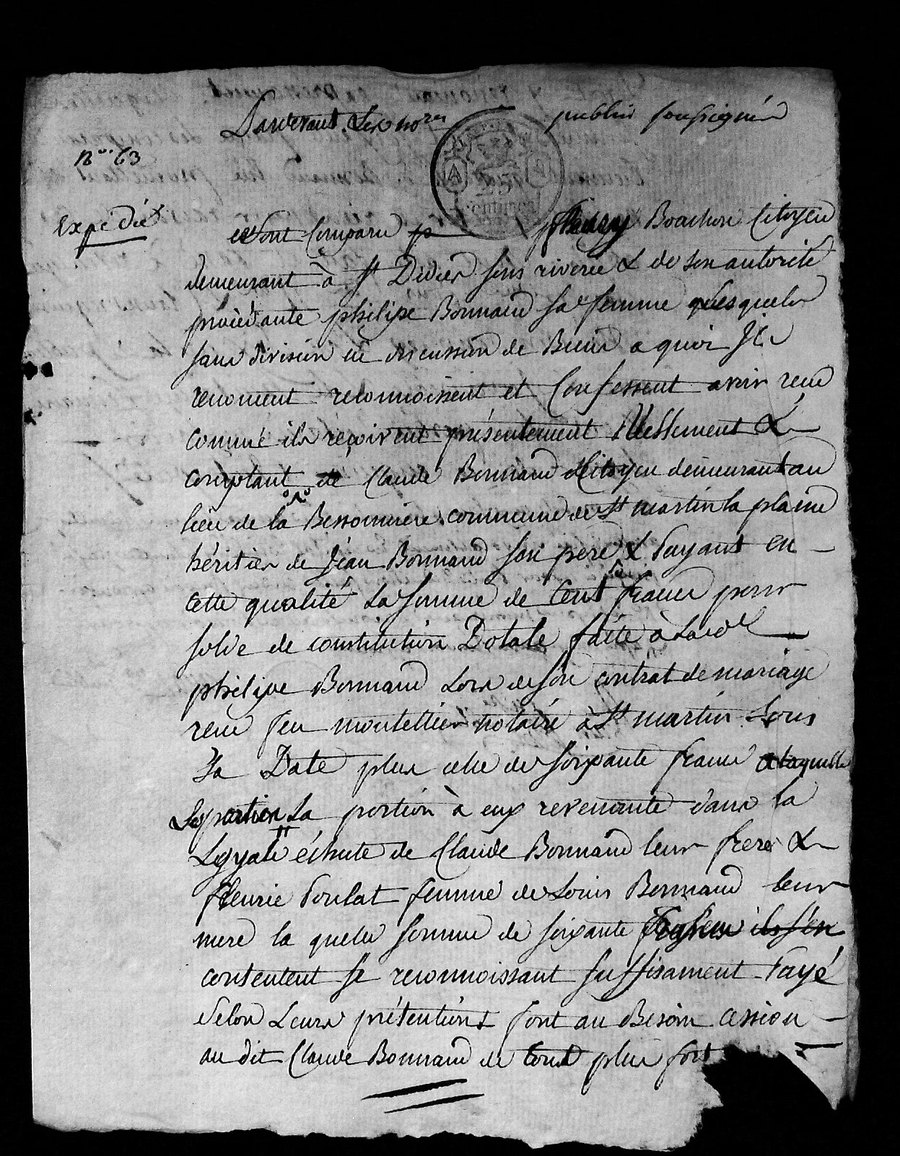 Pardevant Les no.res public soussigné
N.o 63
Expédié
Sont Comparu fleury Bonchon Citoyen
demeurant à St Didier sous riverie & de son autorité
procédante philipe Bonnand sa femme lesquels
sans division ni discussion de Biens a quoi Ils
renoncent reconnoissent et Confessent avoir recu
comme ils reçoivent présentement réellement &
comptant de Claude Bonnand Citoyen demeurant au
lieu de la Bessonniere commune de St martin la plaine
héritier de Jean Bonnand son pere & Payant en
cette qualité La somme de Cent francs pour
solde de constitution Dotale faite à Lad.
philipe Bonnand Lors de son contrat de mariage
recu feu montellier notaire à St martin sous
Sa Date plus celle de soixante francs a laquelle
La portion à eux revenante dans la
échute de Claude Bonnand leur frere &
fleurie Poulat femme de Louis Bonnand leur
mere la quelle somme de soixante francs ils s'en
contentent se reconnoissant suffisament Payé
Selon Leurs prétentions font au Besoin cession
au dit Claude Bonnand de tout plus fort